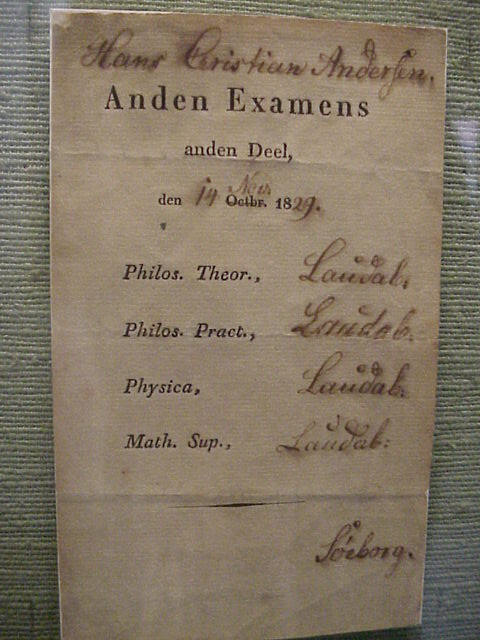 Hans Christian Andersen.
Anden Examens
anden Deel,
den 14 Novr Octbr. 1829.
Philos. Theor., Laudab:
Philos. Pract., Laudab.
Physica, Laudab:
Math. Sup., Laudab:
Söeborg.